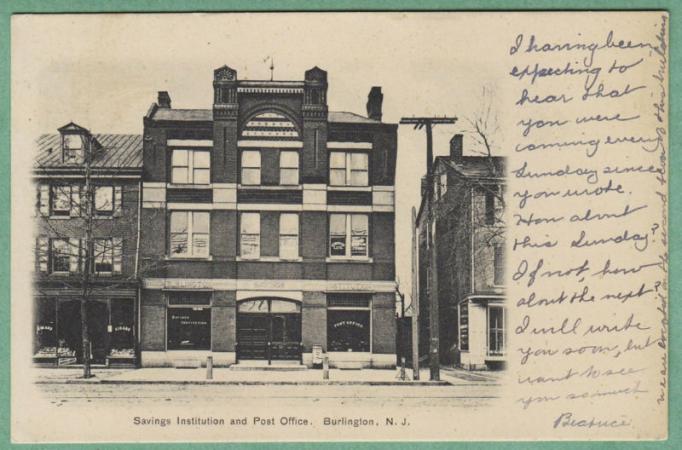 I having been
expecting to
hear that
you were
coming every
Sunday since
you wrote.
How about
this Sunday?
If not, how
about the next?
I will write
you soon, but
want to see
you so much
Beatrice.
we are on the second floor of this building
SAVINGS
INSTITUTION
POST OFFICE
CIGARS
Savings Institution and Post Office. Burlington, N. J.